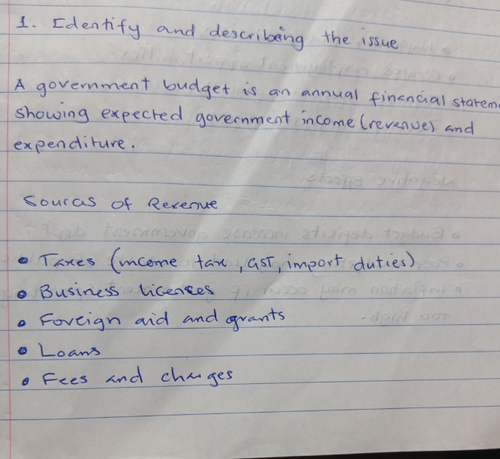 1. Identify and describing the issue
A government budget is an annual financial statem
showing expected government income (revenue) and
expenditure.
Sources of Revenue
• Taxes (income tax, GST, import duties)
• Business licenses
• Foreign aid and grants
• Loans
• Fees and charges